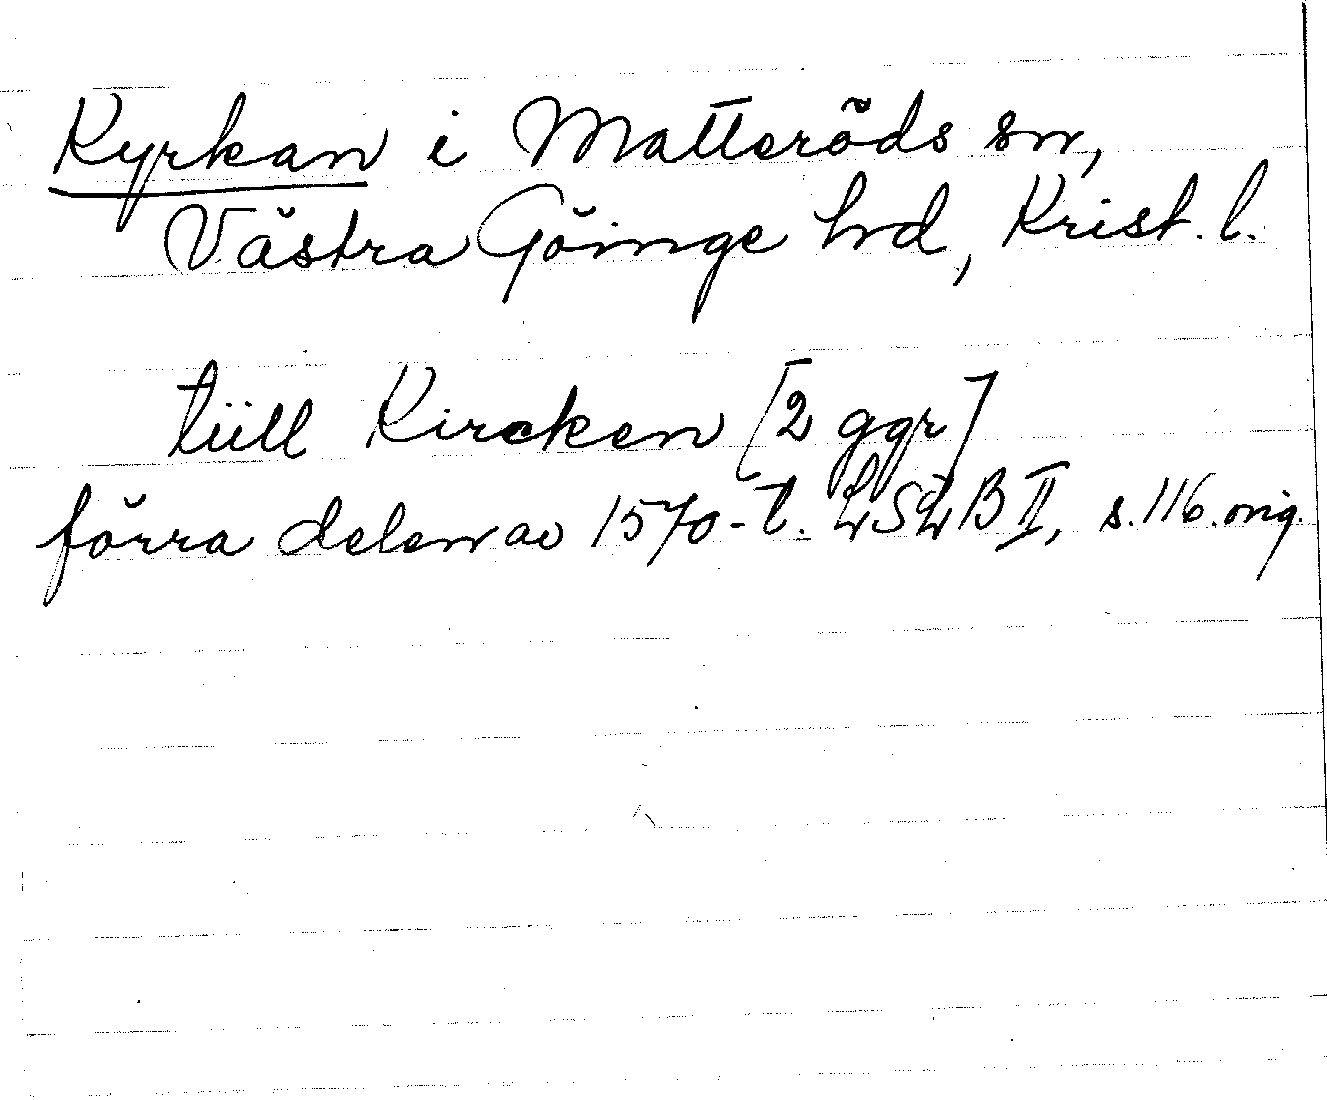 Kyrkan i Matteröds sn,
Västra Göinge hrd, Krist. l.
tiill Kircken [2 ggr]
förra delen av 1570-t. LSLB II, s. 116. orig.